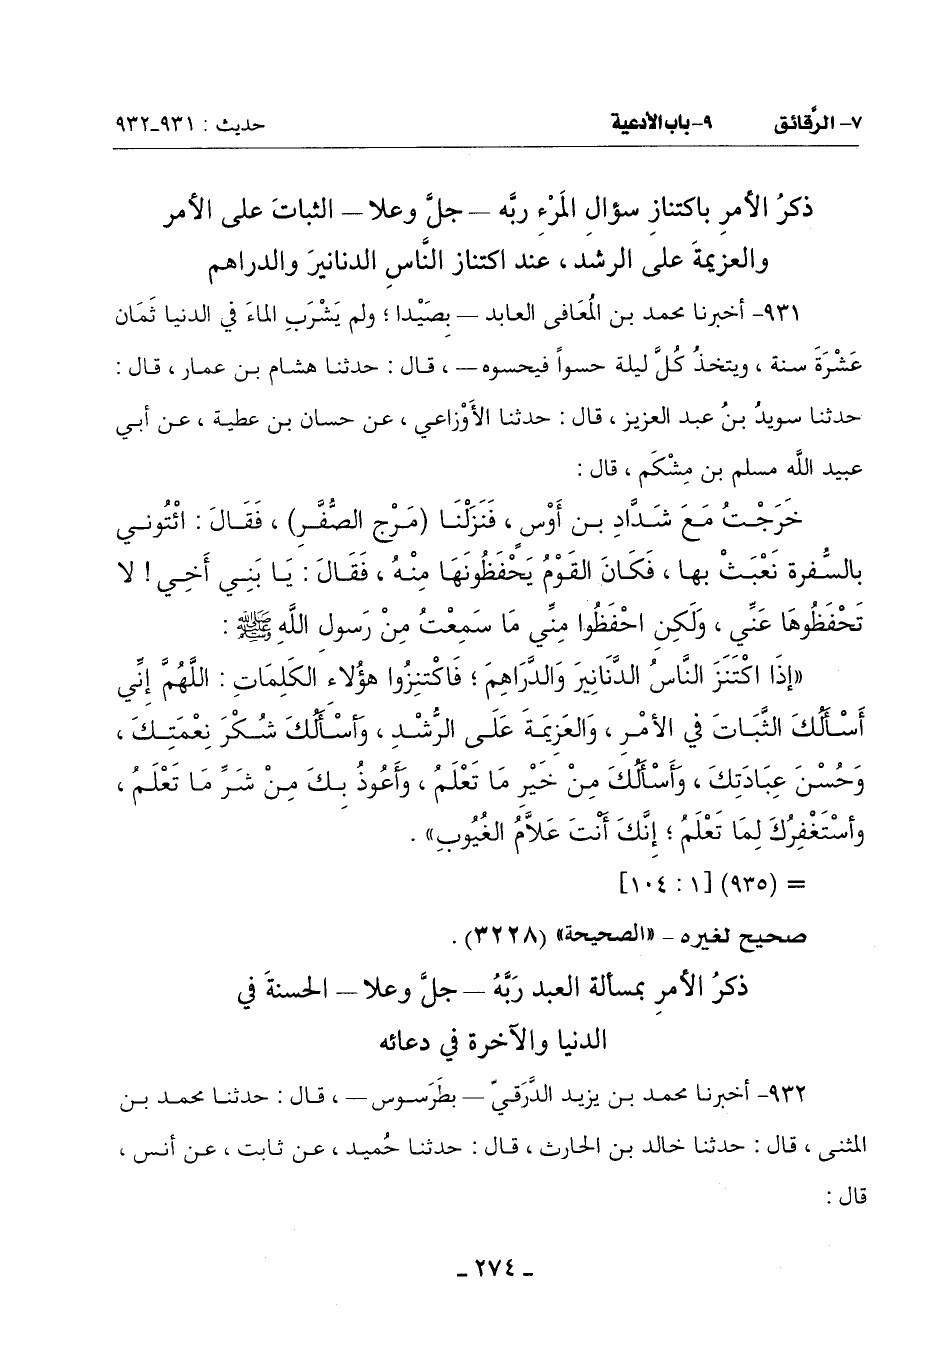 ٧- الرَّقائق ٩-باب الأدعية حديث : ٩٣١-٩٣٢
ذكرُ الأمرِ باكتنازِ سؤالِ المَرْءِ ربَّه – جلَّ وعلا – الثباتَ على الأمر
والعزيمةَ على الرشد ، عند اكتناز النَّاسِ الدنانيرَ والدراهم
٩٣١- أخبرنا محمد بن المُعَافى العابد – بصَيْدا ؛ ولم يَشْرَبِ الماءَ في الدنيا ثَمَان
عَشْرَةَ سنة ، ويتخذُ كُلَّ ليلة حسواً فيحسوه – ، قال : حدثنا هشام بن عمار ، قال :
حدثنا سويدُ بنُ عبد العزيز ، قال : حدثنا الأَوْزاعي ، عن حسان بن عطية ، عن أبي
عبيد اللَّه مسلم بن مِشْكَم ، قال :
خَرَجْتُ مَعَ شَدَّادِ بنِ أَوْسٍ ، فَنَزَلْنَا (مَرْجِ الصُّفَّرِ) ، فَقَالَ : ائْتُونِي
بالسُّفرة نَعْبَثْ بها ، فَكَانَ القَوْمُ يَحْفَظُونَهَا مِنْهُ ، فَقَالَ : يَا بَنِي أَخِي ! لا
تَحْفَظُوهَا عَنِّي ، وَلَكِنِ احْفَظُوا مِنِّي مَا سَمِعْتُ مِنْ رَسولِ اللَّهِ ﷺ :
«إِذَا اكْتَنَزَ النَّاسُ الدَّنَانِيرَ وَالدَّرَاهِمَ ؛ فَاكْتَنِزُوا هؤُلاءِ الكَلِمَاتِ : اللَّهُمَّ إِنِّي
أَسْأَلُكَ الثَّبَاتَ في الأمْرِ ، وَالعَزِيمَةَ عَلَى الرُّشْدِ ، وَأَسْأَلُكَ شُكْرَ نِعْمَتِكَ ،
وَحُسْنَ عِبَادَتِكَ ، وَأَسْأَلُكَ مِنْ خَيْرِ مَا تَعْلَمُ ، وَأَعُوذُ بِكَ مِنْ شَرِّ مَا تَعْلَمُ ،
وأسْتَغْفِرُكَ لِمَا تَعْلَمُ ؛ إِنَّكَ أَنْتَ عَلاَّمُ الغُيُوبِ» .
= (٩٣٥) [١ : ١٠٤]
صحيح لغيره – «الصحيحة» (٣٢٢٨) .
ذكرُ الأمرِ بمسألة العبد رَبَّهُ – جلَّ وعلا – الحسنةَ في
الدنيا والآخرة في دعائه
٩٣٢- أخبرنا محمد بن يزيد الدَّرَقيّ – بطَرَسوس – ، قال : حدثنا محمد بن
المثنى ، قال : حدثنا خالد بن الحارث ، قال : حدثنا حُميد ، عن ثابت ، عن أنس ،
قال :
- ٢٧٤ -